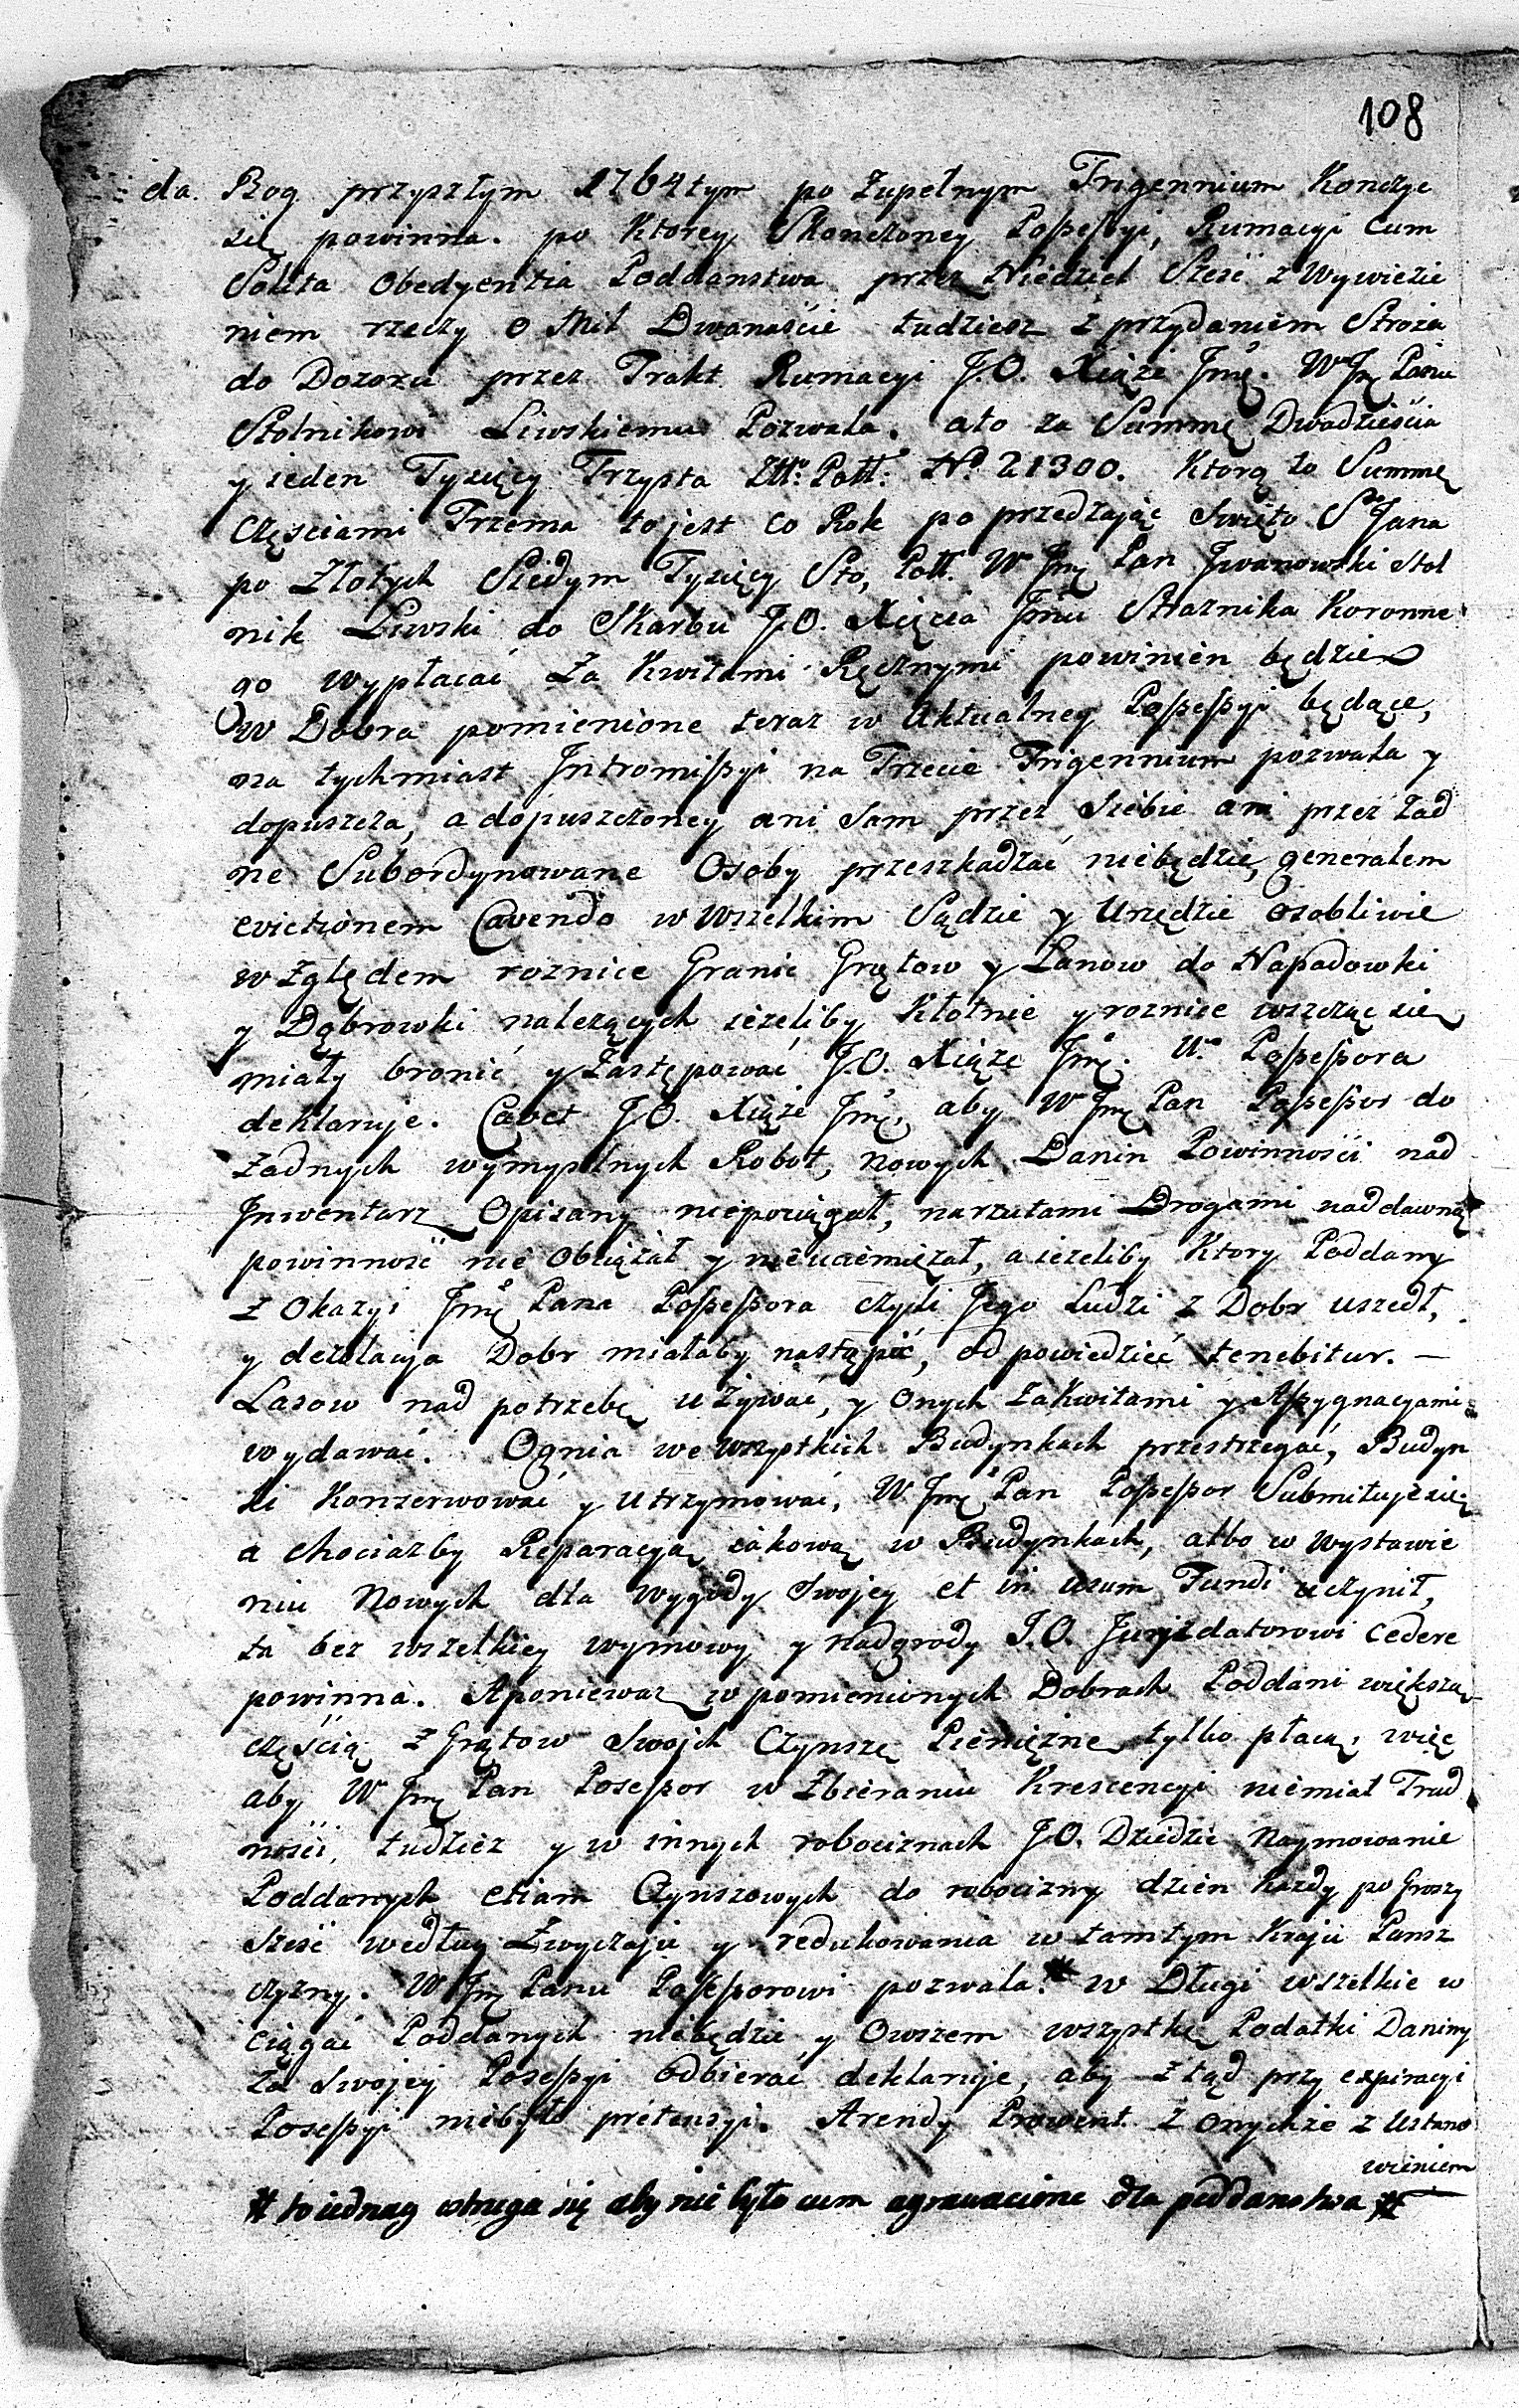 108
da. Rog. przyszłym 1764tym po Zupełnym Trigennium Konczyc
się powinna. po Ktorey Skonczoney Possessyi, Rumacyi cum
Solita Obedyentia Poddanstwa przez Niedziel Szesć z Wywiezie
niem rzeczy o Mil Dwanaście tudziesz z przydaniem Stroża
do Dozoru przez Trakt Rumacyi J.O. Xiąże Jmę. W Jmę Panu
Stolnikowi Liwskiemu Pozwala. ato za Summę Dwadzieścia
y ieden Tysięcy Trzysta Złł: Poll: No. 21300. Ktorą to Summę
Częsciami Trzema to jest co Rok poprzedzając Swięto Sgo Jana
po Złotych Siedym Tysięcy Sto, Poll. W Jmę Pan Jwanowski Stol
nik Liwski do Skarbu J.O. Xięcia Jmci Straznika Koronne
go wypłacać Za Kwitami Ręcznymi powinien będzie
W Dobra pomienione teraz w Aktualney Possessyi będące,
na tychmiast Jntromissyi na Trzecie Trigennium pozwala y
dopuszcza, a dopuszczoney ani Sam przez Siebie ani przez Zad
ne Subordynowane Osoby przeszkadzać niebędzie, generalem
evictionem Cavendo w Wszelkim Sądzie y Urzędzie osobliwie
w Zględem roznice Granic Grętow y Łanow do Napadowki
y Dąbrowki nalezących ieżeliby Kłotnie y roznice wszcząc się
miały bronić y Zastępować J.O. Xiąże Jmę. W. Possessora
deklaruje. Cavet J.O. Xiąże Jmę, aby W Jmę Pan Possessor do
Zadnych wymyslnych Robot, nowych Danin Powinności nad
Jnwentarz Opisany niepociągał, narzutami Drogami nad dawną
powinność nie Obciążał y nieuciemiężał, a ieżeliby Ktory Poddany
z Okazyi Jmę Pana Possessora czyli Jego Ludzi z Dobr uszedł,
y dezolacya Dobr miałaby nastąpić, odpowiedzieć tenebitur. —
Lasow nad potrzebę uZywać, y Onych zakwitami y Assygnacyami
wydawać. Ognia we Wszystkich Budynkach przestrzegać, Budyn
ki Konserwować y Utrzymować, W Jmę Pan Possessor Submituje się
a chociażby Reparacyą iakową w Budynkach, albo w wystawie
niu Nowych dla wygody Swojey et in usum Fundi uczynił,
ta bez wszelkiey wymowy y nadgrody J.O. Jurizdatorowi cedere
powinna. Aponieważ w pomienionych Dobrach Poddani większą
częścią z Grętow Swojch Czynsze Pieniężne tylko płacą, więc
aby W Jmę Pan Posessor w Zbieraniu Krescencyi niemiał Trud
ności, tudzież y w innych robociznach J.O. Dziedzic Naymowanie
Poddanych etiam Czynszowych do robocizny dzień każdy po Groszy
Szesć według Zwyczaju y redukowania w tamtym Kraju Pansz
czyzny. W Jmę Panu Possessorowi pozwala.* w Długi wszelkie w
ciągać Poddanych niebędzie, y Owszem wszystkę Podatki Daniny
za Swojey Posessyi odbierać deklaruje, aby ztąd przy expiracyi
Posessyi niebyło pretensyi. Arendy Prowent z onychże z Ustano
wieniem
* to iednag wtruga się aby nie było cum agrauacione dla poddanstwa *